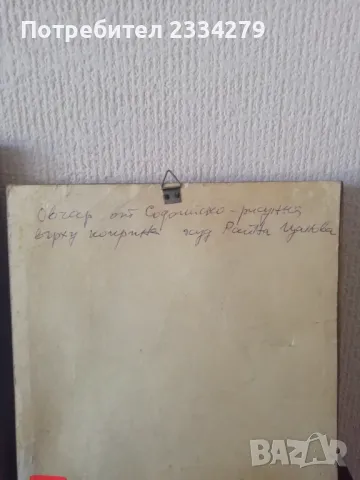 Потребител 2334279
Овчар от Софийско - рисунка
върху коприна худ Райна Цанкова
BAZAR